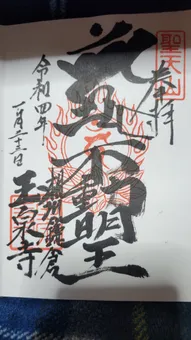 奉拝
聖天山
不動明王
令和四年
一月二十三日
相州鎌倉
玉泉寺